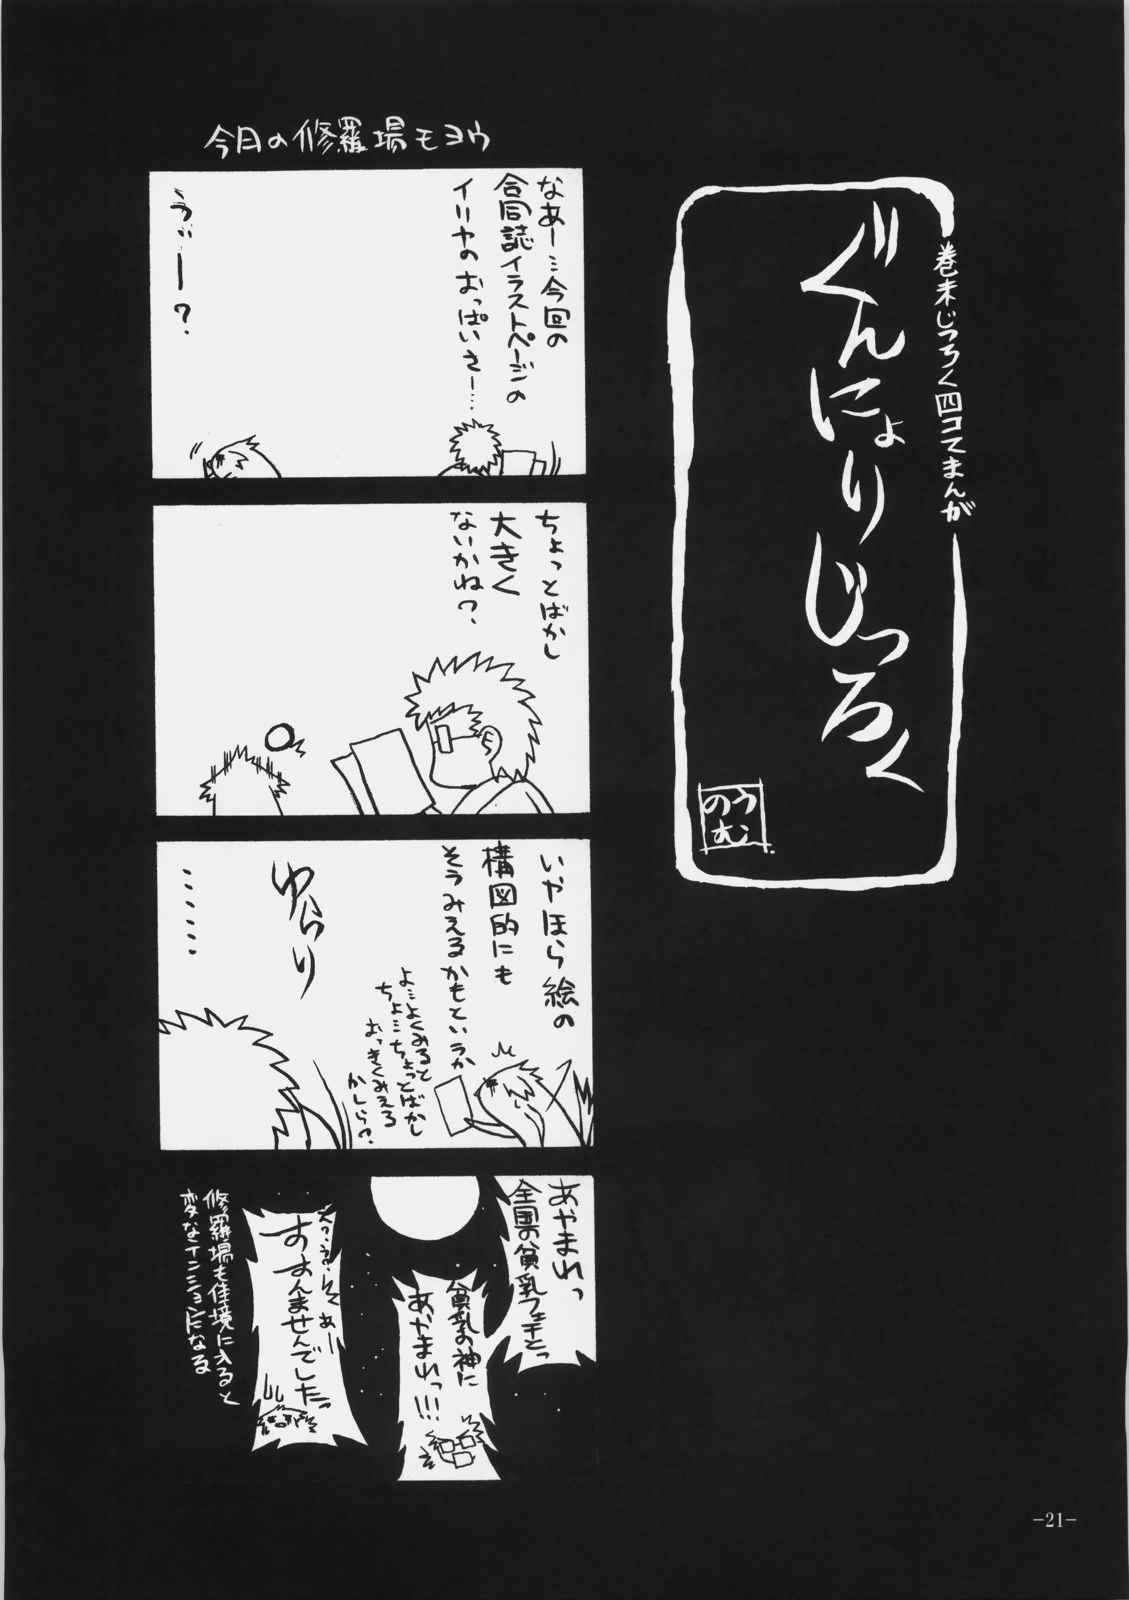 巻末じつろく四コてまんが
ぐんにょりじつろく
のうむ
今月の修羅場モヨウ
なあー…今回の
合同誌イラストページの
イリヤのおっぱいさー…
うぃー?
ちょっとばかし
大きく
ないかね?
いやほら絵の
構図的にも
そうみえるかもというか
よ…よくみると
ちょ…ちょっとばかし
おっきくみえる
かしら?
ゆらり
……
あやまれっ
全国の貧乳フェチとっ
貧乳の神に
あやまれっ!!!
すすんませんでしたっ
修羅場も佳境に入ると
変なテンションになる
-21-